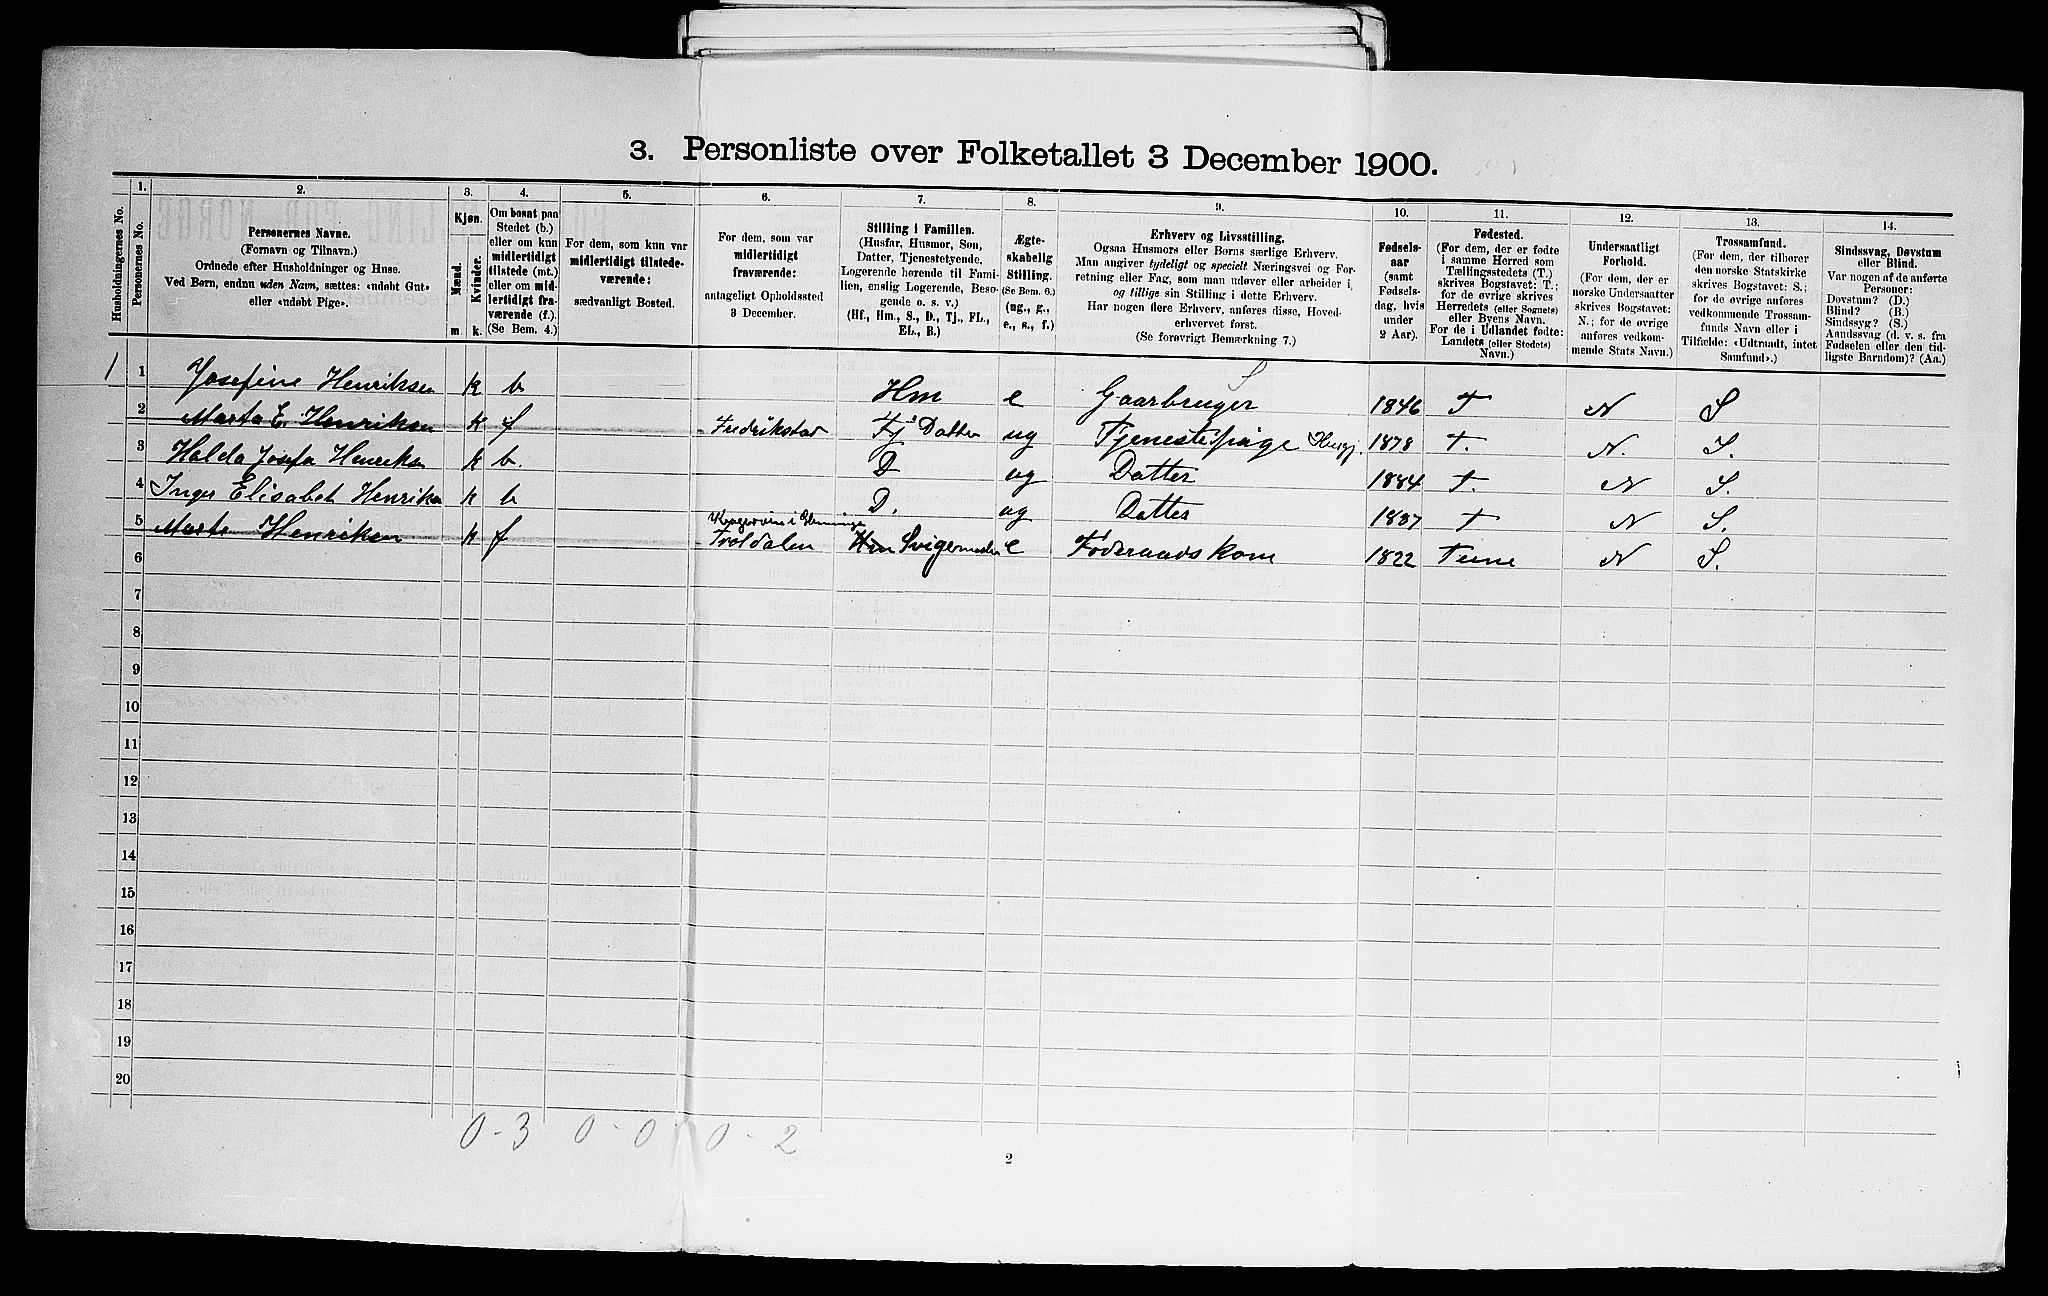 3. Personliste over Folketallet 3 December 1900.
Husholdningernes No.
1.
Personernes No.
2.
Personernes Navne.
(Fornavn og Tilnavn.)
Ordnede efter Husholdninger og Huse.
Ved Børn, endnu uden Navn, sættes: «udøbt Gut»
eller «udøbt Pige».
3.
Kjøn.
Mænd.
Kvinder.
m.
k.
4.
Om bosat paa
Stedet (b.)
eller om kun
midlertidigt
tilstede (mt.)
eller om mid-
lertidigt fra-
værende (f.).
(Se Bem. 4.)
5.
For dem, som kun var
midlertidigt tilstede-
værende:
sædvanligt Bosted.
6.
For dem, som var
midlertidigt
fraværende:
antageligt Opholdssted
3 December.
7.
Stilling i Familien.
(Husfar, Husmor, Søn,
Datter, Tjenestetyende,
Logerende hørende til Fami-
lien, enslig Logerende, Besø-
gende o. s. v.)
(Hf., Hm., S., D., Tj., FL.,
EL., B.)
8.
Ægte-
skabelig
Stilling.
(Se Bem. 6.)
(ug., g.,
e., s., f.)
9.
Erhverv og Livsstilling.
Ogsaa Husmors eller Børns særlige Erhverv.
Man angiver tydeligt og specielt Næringsvei og For-
retning eller Fag, som man udøver eller arbeider i,
og tillige sin Stilling i dette Erhverv.
Har nogen flere Erhverv, anføres disse, Hoved-
erhvervet først.
(Se forøvrigt Bemærkning 7.)
10.
Fødsels-
aar
(samt
Fødsels-
dag, hvis
under
2 Aar).
11.
Fødested.
(For dem, der er fødte
i samme Herred som
Tællingsstedets (T.)
skrives Bogstavet: T.;
for de øvrige skrives
Herredets (eller Sognets)
eller Byens Navn.
For de i Udlandet fødte:
Landets (eller Stedets)
Navn.)
12.
Undersaatligt
Forhold.
(For dem, der er
norske Undersaatter
skrives Bogstavet:
N.; for de øvrige
anføres vedkom-
mende Stats Navn.)
13.
Trossamfund.
(For dem, der tilhører
den norske Statskirke
skrives Bogstavet: S.;
for de øvrige anføres
vedkommende Trossam-
funds Navn eller i
Tilfælde: «Udtraadt, intet
Samfund».)
14.
Sindssvag, Døvstum
eller Blind.
Var nogen af de anførte
Personer:
Døvstum? (D.)
Blind? (B.)
Sindssyg? (S.)
Aandssvag (d. v. s. fra
Fødselen eller den tid-
ligste Barndom)? (Aa.)
1 1 Josefine Henriksen k b Hm e Gaarbruger 1846 T N S
2 Marta E. Henriksen k f Fredrikstad Tj. Datter ug Tjenestepige 1878 T. N. S.
3 Halda Josefa Henriksen k b. D ug Datter 1884 T. N S.
4 Inger Elisabet Henriksen k b D. ug Datter 1887 T N S.
5 Marte Henriksen k f Troldalen Hm Svigermoder e Føderaadskone 1822 Tune N S.
6
7
8
9
10
11
12
13
14
15
16
17
18
19
20
0 - 3 0 - 0 0 - 2
2